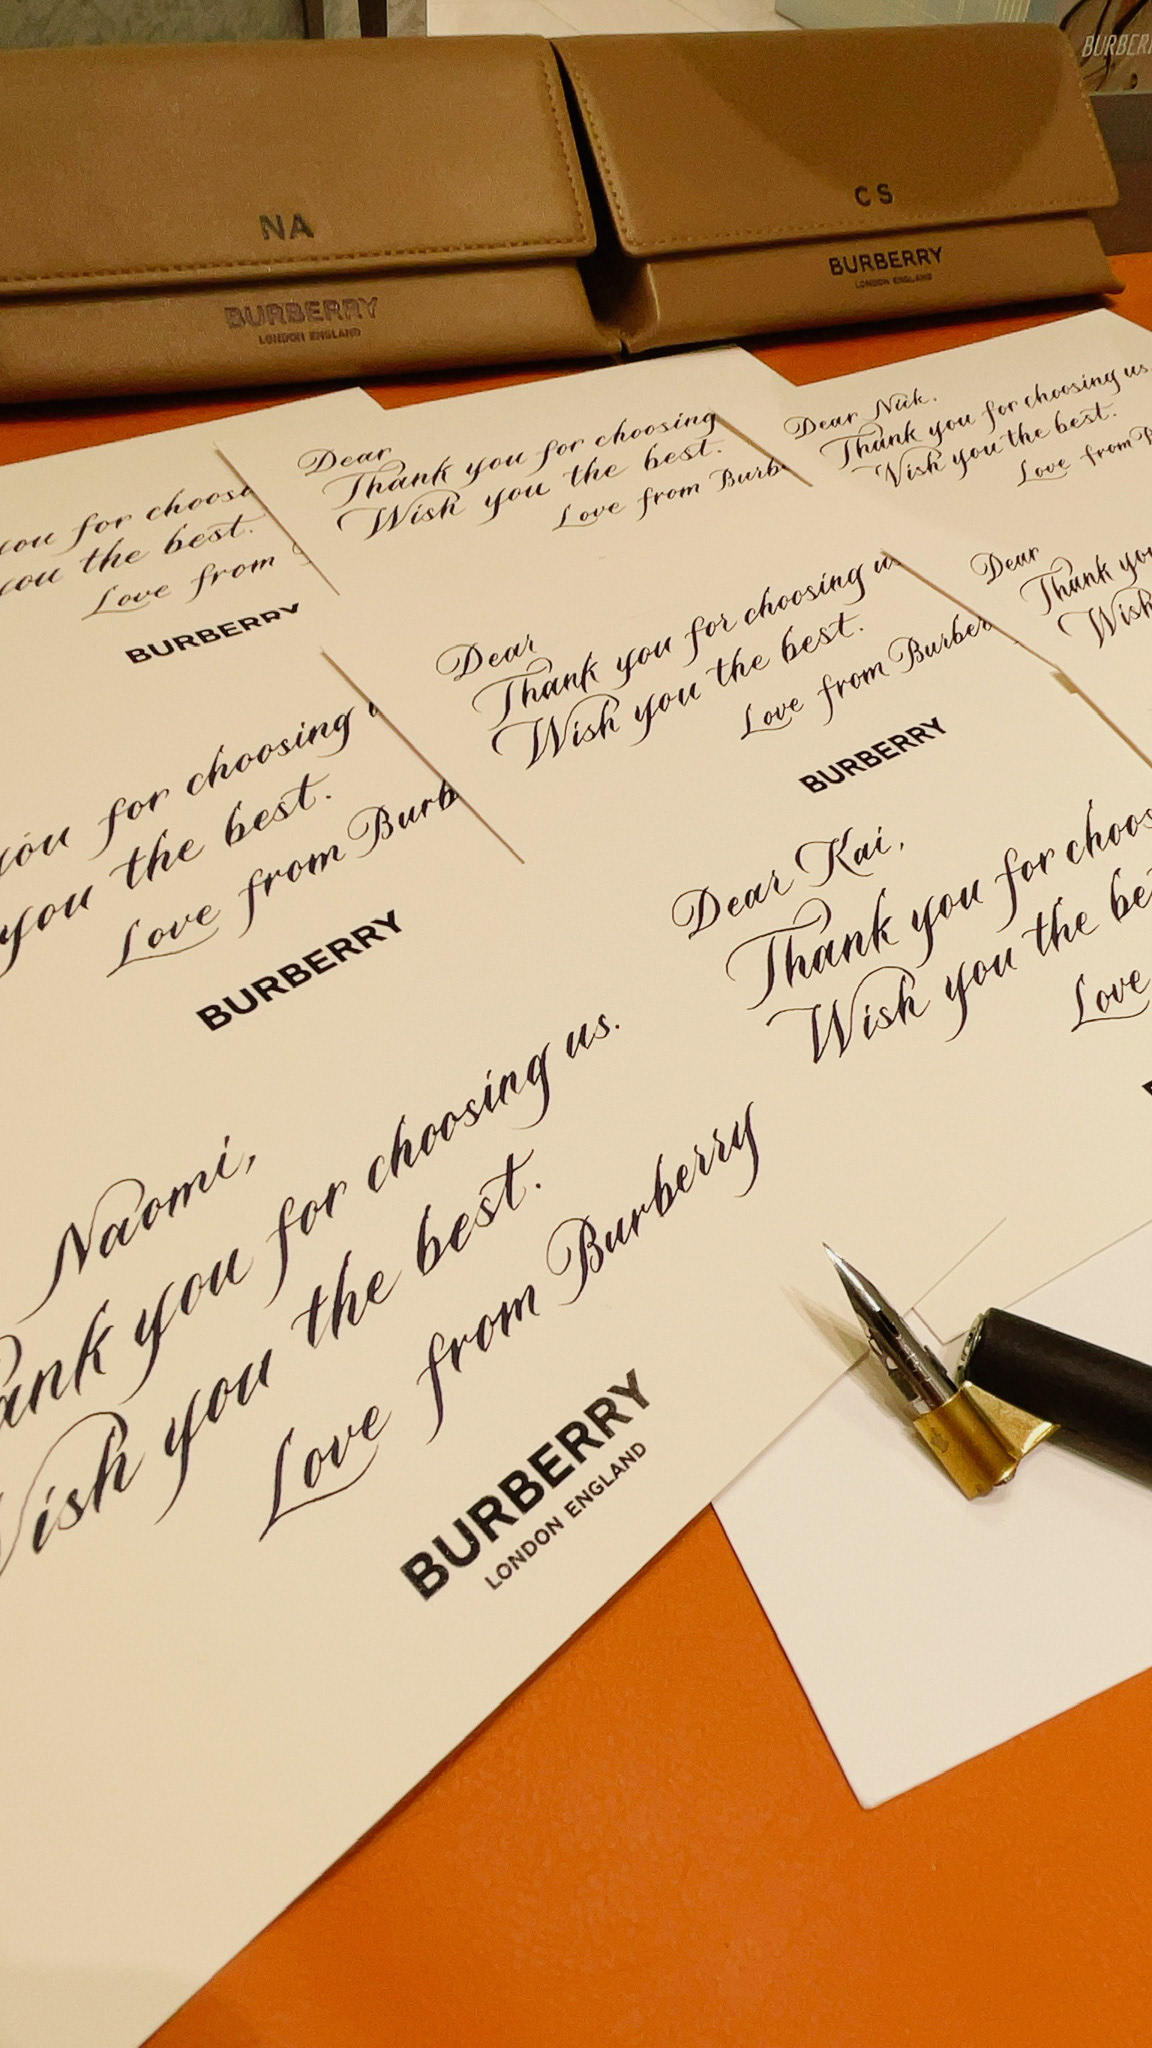 BURBER
NA
BURBERRY
LONDON ENGLAND
C S
BURBERRY
LONDON ENGLAND
you for choosi
you the best.
Love from
BURBERRY
Dear
Thank you for choosing
Wish you the best.
Love from Burb
Dear Nick.
Thank you for choosing us.
Wish you the best.
Love from B
Dear
Thank you for choosing us
Wish you the best.
Love from Burber
BURBERRY
Dear
Thank you
Wish
you for choosing
you the best.
Love from Burb
BURBERRY
Dear Kai,
Thank you for choos
Wish you the be
Love
Naomi,
ank you for choosing us.
Wish you the best.
Love from Burberry
BURBERRY
LONDON ENGLAND